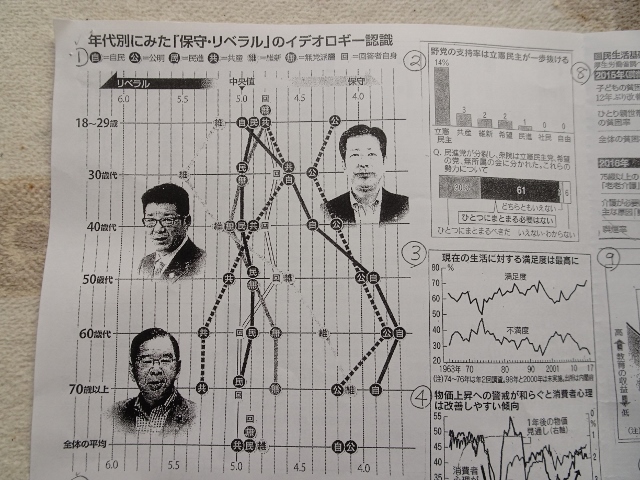 ① 年代別にみた「保守・リベラル」のイデオロギー認識
自=自民 公=公明 民=民進 共=共産 維=維新 無=無党派層 回=回答者自身
リベラル 中央値 保守
6.0 5.0 4.0
18〜29歳
30歳代
40歳代
50歳代
60歳代
70歳以上
全体の平均
6.0 5.5 5.0 4.5 4.0
②
野党の支持率は立憲民主が一歩抜ける
14%
3 2 1 1 0 0
立憲民主 共産 維新 希望 民進 社民 自由
Q. 民進党が分裂し、衆院は立憲民主党、希望
の党、無所属の会に分かれた。これらの
勢力について
61 6
どちらともいえない
ひとつにまとまる必要はない
ひとつにまとまるべきだ いえない・わからない
③
現在の生活に対する満足度は最高に
80 %
70
60
50
40
30
20
満足度
不満度
1963年 70 80 90 2001 17
(注)74〜76年は年2回調査。98年と2000年は未実施。出所は内閣府
④
物価上昇への警戒が和らぐと消費者心理
は改善しやすい傾向
55 %
50
45
40
1年後の物価
見通し(右軸)
消費者
心理
⑧
国民生活基
2015年
子どもの貧困
12年ぶり改
ひとり親世帯
の貧困率
全体の貧困
2016年
75歳以上の
「老老介護
⑨
高
教育の収益
低